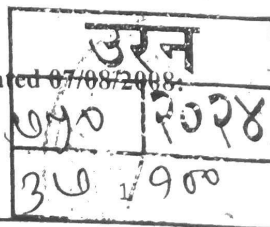 उरन
ated 07/08/2008:
७५० २०२४
३७ 1/ १००